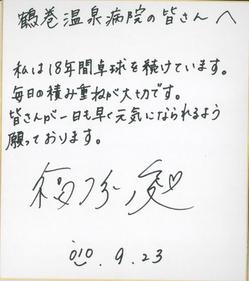 鶴巻温泉病院の皆さんへ
私は18年間卓球を続けています。
毎日の積み重ねが大切です。
皆さんが一日も早く元気になられるよう
願っております。
2010.9.23